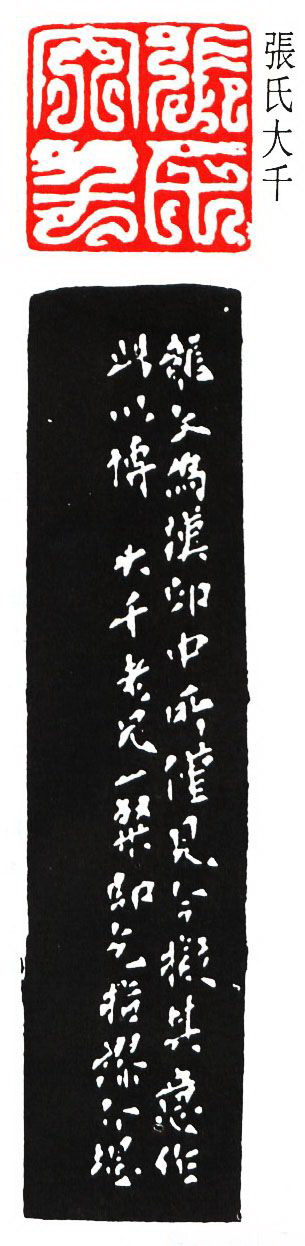 張氏大千
張氏
大千
龍文為漢印中所僅見今擬其意作
此以博 大千老兄一粲即乞指介堪